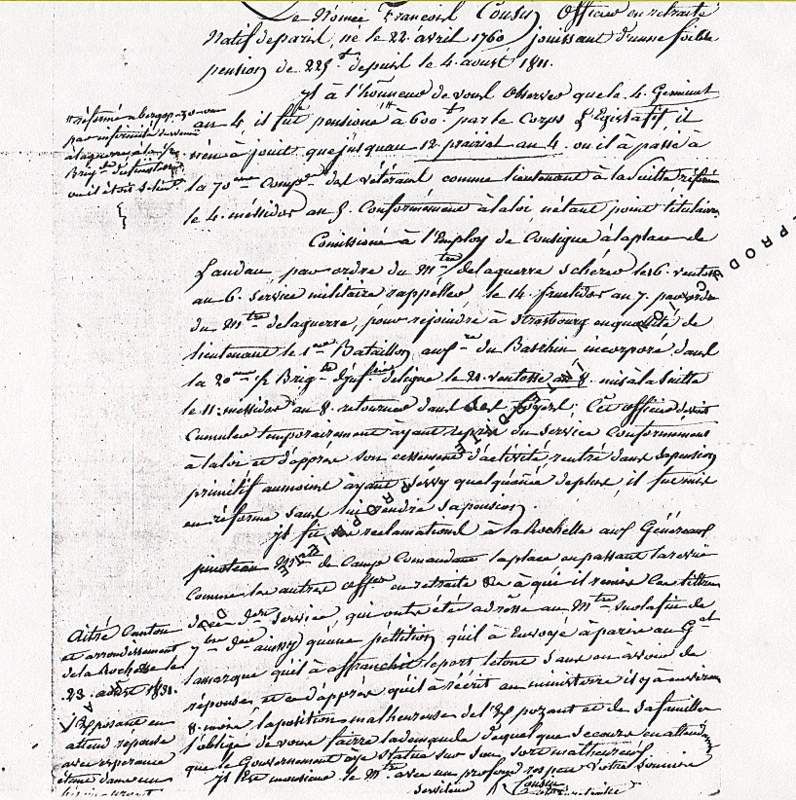 Le Nómée François Cousin Officier en retraite
Natif deparis, né le 22. avril 1760, jouissant d'une foible
pension de 225.ᵗ depuis le 4. aoust 1811.
Il à l'honneur de vous observer que le 4. Germinal
an 4, il fut pensioné à 600.ᵗ par le Corps Législatif il
à jouit que jusquau 12. prairial an 4. ou il à passé a
la 70ᵐᵉ Compᵉ des Vétérans comme lieutenant à la suitte réformé
le 4. messidor an 5. Conformément à la loi nétant point titulaire
Comissioné à l'Employ de Consigne à la place de
Landau par ordre du Mᵗʳᵉ de la guerre schérer le 6. ventose
au 6. service militaire rappellér, le 14. fructidor an 7. par ordre
du Mᵗʳᵉ delaguerre, pour rejoindre à strasbourg en qualité de
lieutenant le 1ᵉʳ Bataillon du Basrhin incorporé dans
la 20ᵐᵉ ½ Brigᵈᵉ de ligne le 21. ventosse an 8. mis à la suitte
le 11. messidor an 8. retourner dans ses foyers; Cet officier devoit
Cumuler temporairement ayant repris du service Conformément
à la loi et d'après son cessement d'activité rentré dans sa pension
primitif aumoins ayant servy quelqu'année deplus, il fut mis
en réforme sans lui rendre sa pension
Il fit ses reclamations à la Rochelle aux Généraux
pinoteau de Camps Comandant la place en passant la revue
Comme les autres offᵉʳˢ en retraite à qui il remis Ces tittres
de service, qui ont été adresse au Mᵗʳᵉ sur la fin de
7ᵇʳᵉ dᵉʳ aussy qu'une pétition qu'il à Envoyé à paris au Gᵃˡ
lamarque qu'il à affranchit le port le tout sans en avoir de
réponse, et en d'après qu'il à réécrit au ministerre il y à environ
8. mois, la position malheureuse de l'Exposant et de sa famille
l'oblige de vous faire la demande de quelque secours en attendant
que le Gouvernement aye statué sur son sort malheureux
Il Est monsieur le Mᵗʳᵉ avec un profond respect Votre soumis
serviteur Cousin
réformé a bergop-zoom
par infirmité
à la guerre à la ½
Brigᵈᵉ
ou il étoit
Aitré Canton
et arrondissement
de la Rochelle le
23. 1831.
L'Exposant en
attend réponse
avec esperance